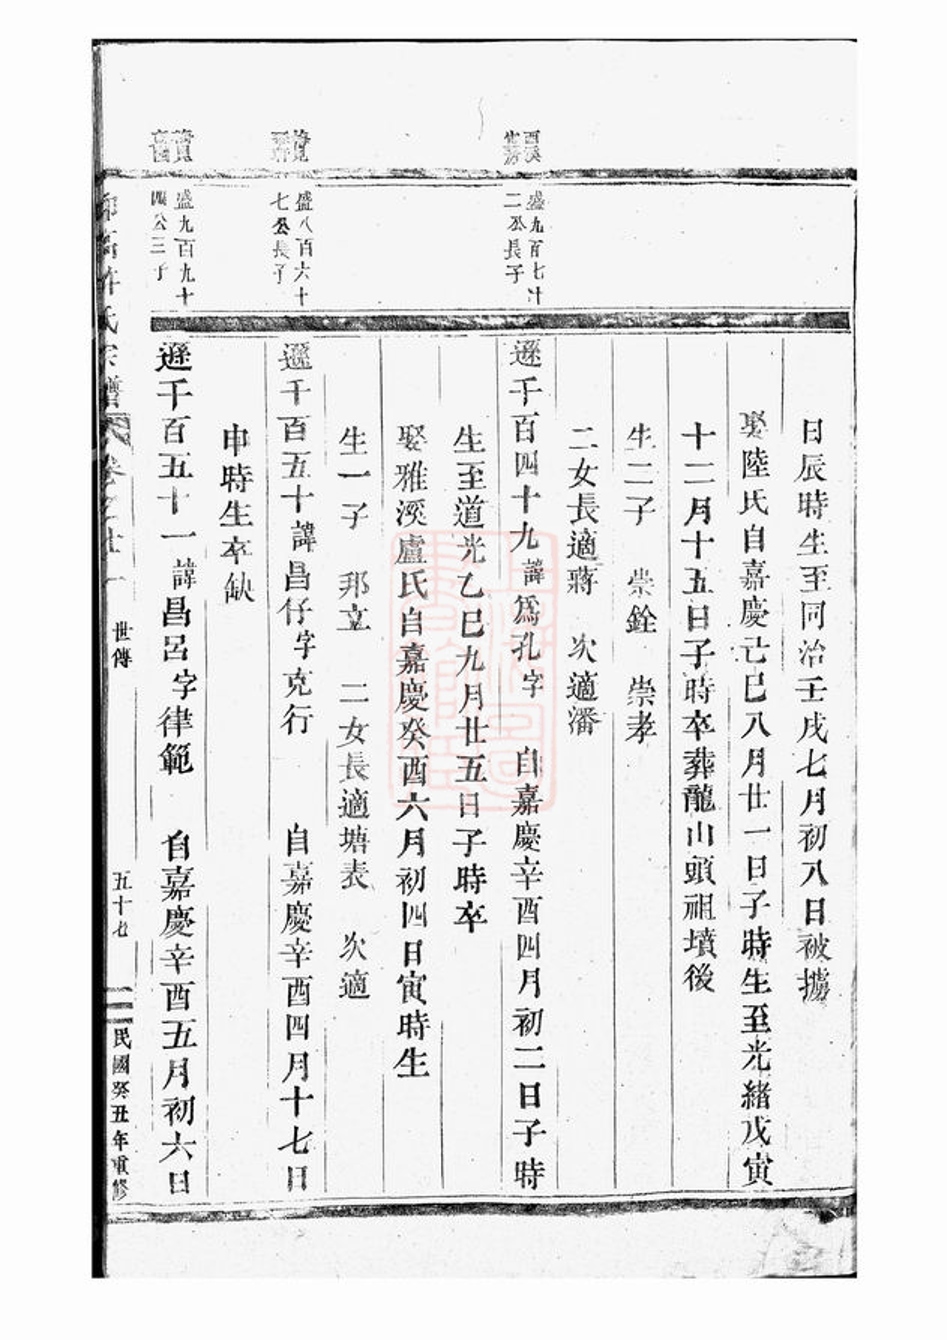 日辰時生至同治壬戌七月初八日被擄
娶陸氏自嘉慶己巳八月廿一日子時生至光緒戊寅
十二月十五日子時卒葬龍山頭祖墳後
生二子　崇銓　崇孝
二女長適蔣　次適潘
盛九百七十
二公長子
遜千百四十九諱為孔字　自嘉慶辛酉四月初二日子時
生至道光乙巳九月廿五日子時卒
娶雅溪盧氏自嘉慶癸酉六月初四日寅時生
生一子　邦立　二女長適塘表　次適
盛八百六十
七公長子
遜千百五十諱昌仔字克行　自嘉慶辛酉四月十七日
申時生卒缺
盛九百九十
四公三子
遜千百五十一諱昌呂字律範　自嘉慶辛酉五月初六日
氏宗譜
卷之十一
世傳
五十七
民國癸丑年重修